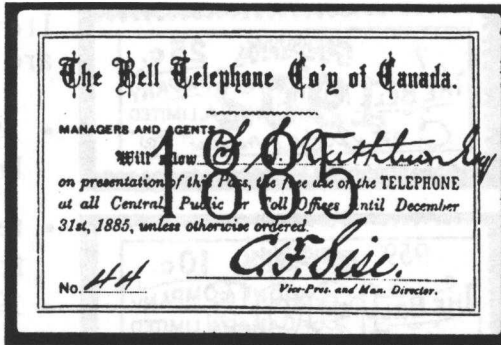 The Bell Telephone Co'y of Canada.
MANAGERS AND AGENTS
1885
Will allow S. Rathbun Esq
on presentation of this Pass, the free use of the TELEPHONE
at all Central, Public or Toll Offices until December
31st, 1885, unless otherwise ordered.
C. F. Sise.
No. 44
Vice-Pres. and Man. Director.